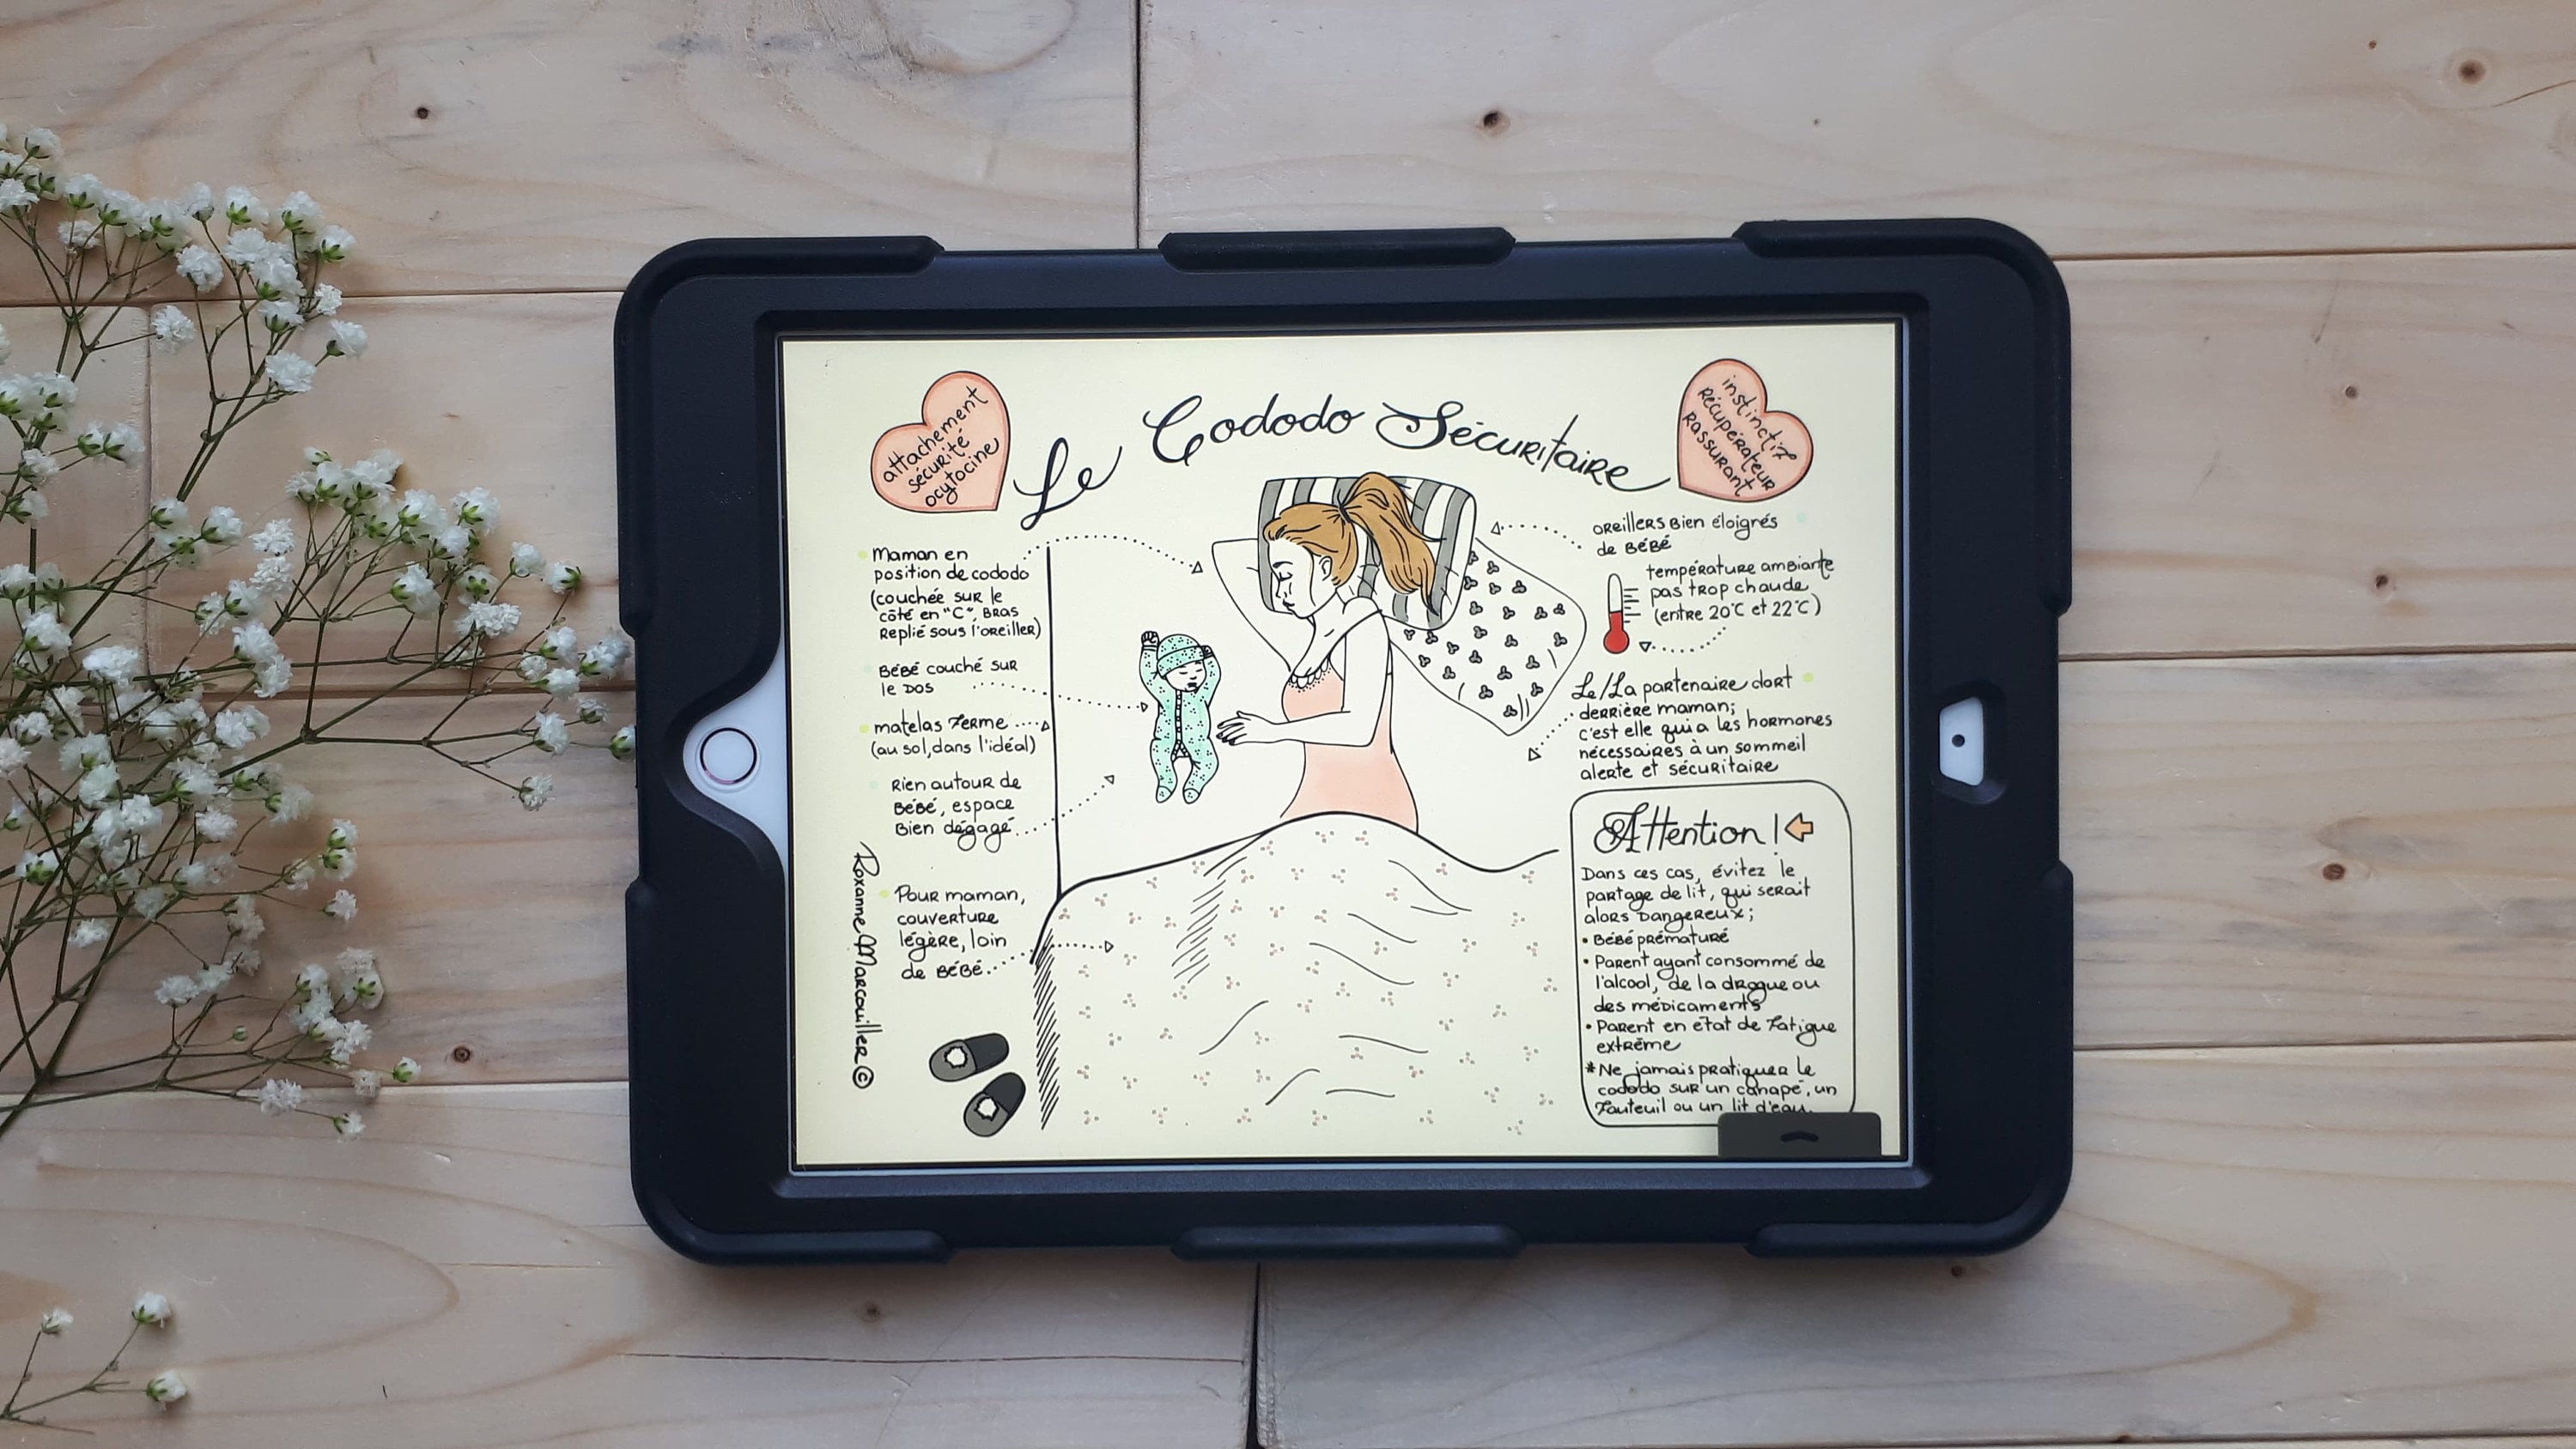 attachement
sécurité
ocytocine
Le Cododo Sécuritaire
instinctif
Récupérateur
Rassurant
Maman en
position de cododo
(couchée sur le
côté en "C", Bras
Replié sous l'oreiller)
Bébé couché sur
le Dos
matelas ferme
(au sol, dans l'idéal)
Rien autour de
Bébé, espace
Bien dégagé
Pour maman,
couverture
légère, loin
de Bébé
Roxanne Marcouiller ©
oreillers Bien éloignés
de Bébé
température ambiante
pas trop chaude
(entre 20°C et 22°C)
Le/La partenaire dort
derrière maman;
c'est elle qui a les hormones
nécessaires à un sommeil
alerte et sécuritaire
Attention!
Dans ces cas, évitez le
partage de lit, qui serait
alors Dangereux;
• Bébé prématuré
• Parent ayant consommé de
l'alcool, de la drogue ou
des médicaments
• Parent en état de fatigue
extrême
*Ne jamais pratiquer le
cododo sur un canapé, un
fauteuil ou un lit d'eau.